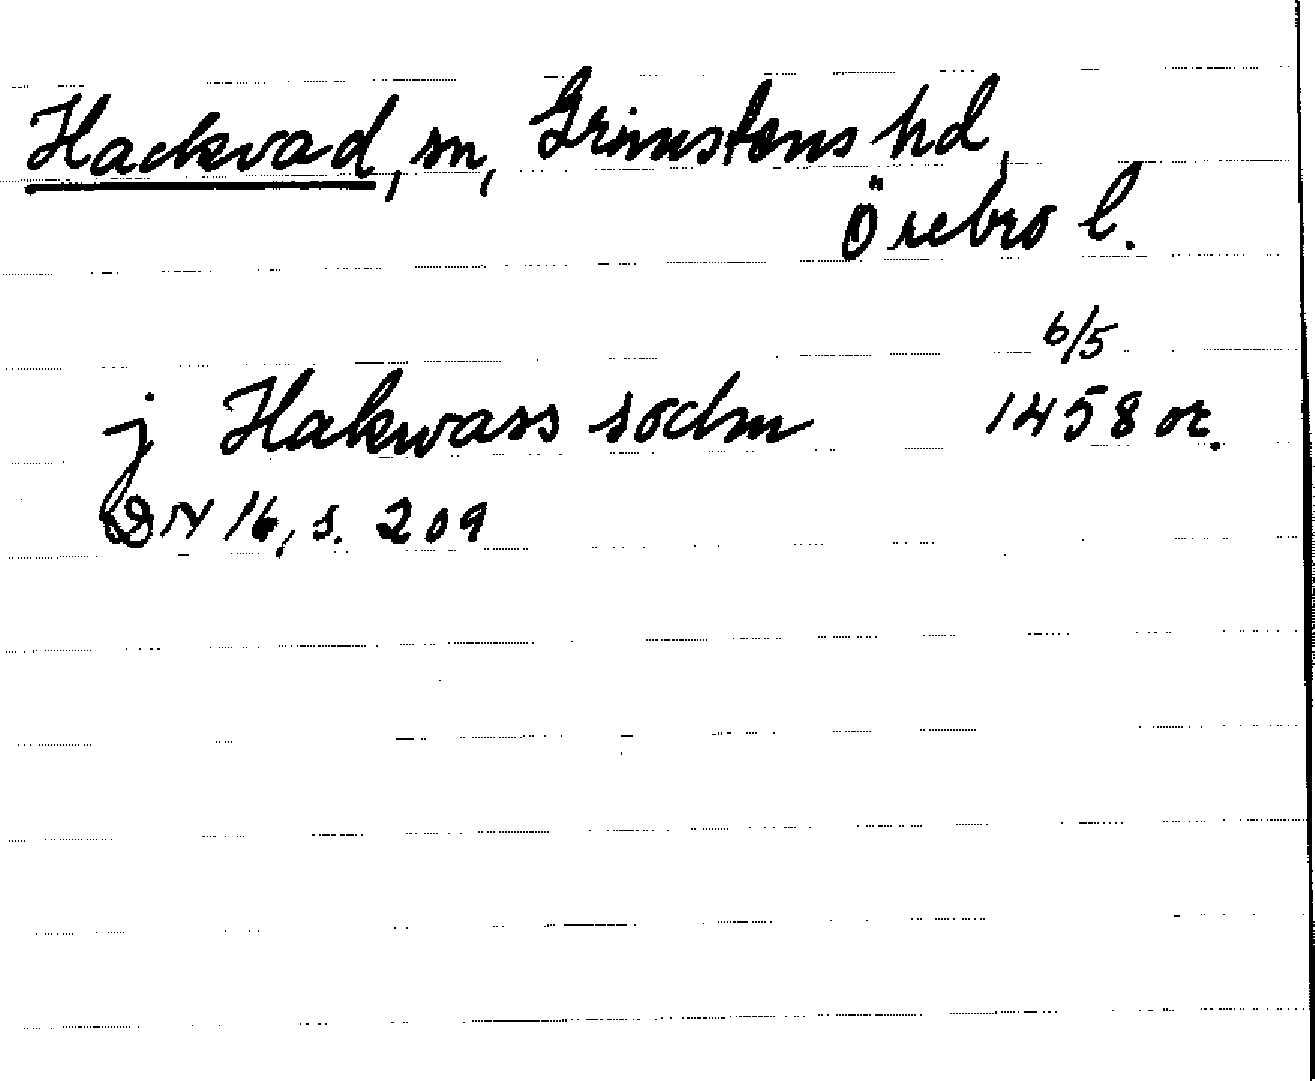 Hackvad, sn, Grimstens hd,
Örebro l.
6/5
j Hakwass sochn 1458 or.
DN 16, s. 209